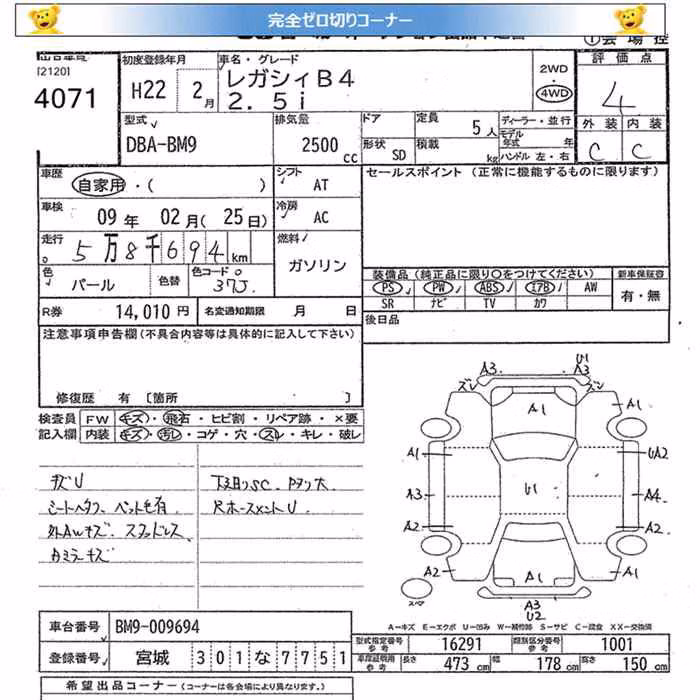 完全ゼロ切りコーナー
[2120]
4071
初度登録年月
H22 2月
車名・グレード
レガシィB4
2.5i
2WD
4WD
評価点
4
外装 内装
C C
型式
DBA-BM9
排気量
2500 cc
ドア
形状 SD
定員 5人
積載 kg
ディーラー・並行
モデル年式 年
ハンドル 左・右
車歴
自家用・( )
シフト
AT
セールスポイント(正常に機能するものに限ります)
車検
09年 02月(25日)
冷房
AC
走行
5万8千694km
燃料
ガソリン
色
パール
色替
色コード
37J
装備品(純正品に限り○をつけてください)
新車保証書
PS PW ABS エアB AW
SR ナビ TV カワ
有・無
R券 14,010円
名変通知期限 月 日
後日品
注意事項申告欄(不具合内容等は具体的に記入して下さい)
修復歴 有 〔箇所 〕
検査員
記入欄
FW キズ・飛石・ヒビ割・リペア跡・×要
内装 キズ・汚レ・コゲ・穴・スレ・キレ・破レ
シートヘタリ、ペット毛有
外AWキズ、スタッドレス
カミラーキズ
A3 U1
A3
ズレ ズレ
A1 A1
A1 UA2
A3 U1 A4
A2 A2
A2 A1 A1
スペア
A3
U2
A=キズ E=エクボ U=凹み W=補修跡 S=サビ C=腐食 XX=交換済
車台番号 BM9-009694
登録番号 宮城 301な7751
型式指定番号
参考
16291
類別区分番号
参考
1001
車庫証明用
参考
長さ 473cm 幅 178cm 高さ 150cm
希望出品コーナー(コーナーは各会場により異なります。)